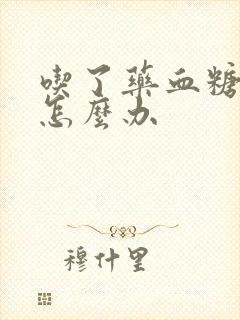 喫了藥血糖
怎麼办
穆什里